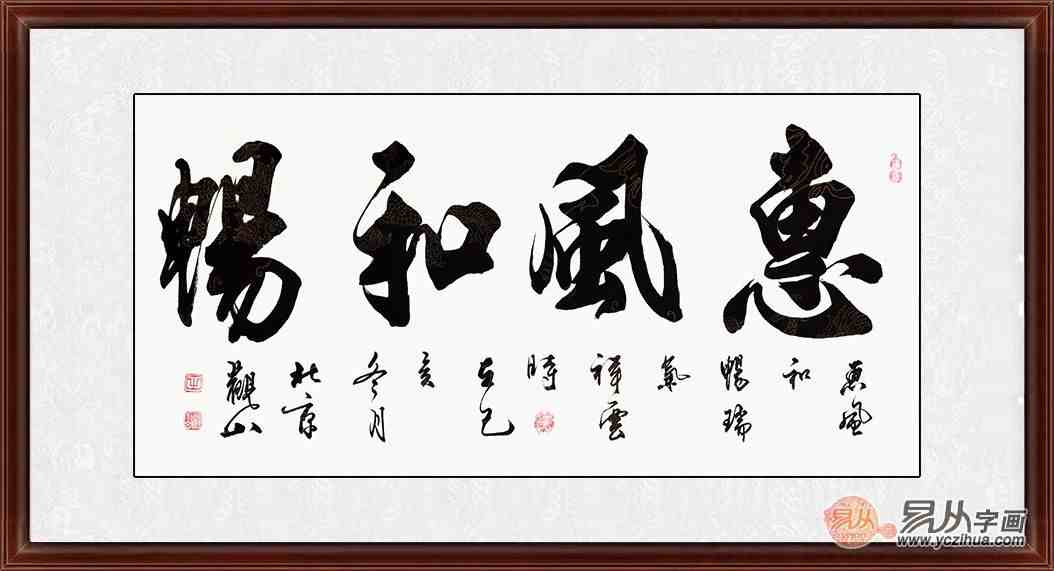 惠風和暢
惠風和暢瑞氣祥雲時在己亥冬月北京觀山
易从
易从字画
www.yczihua.com